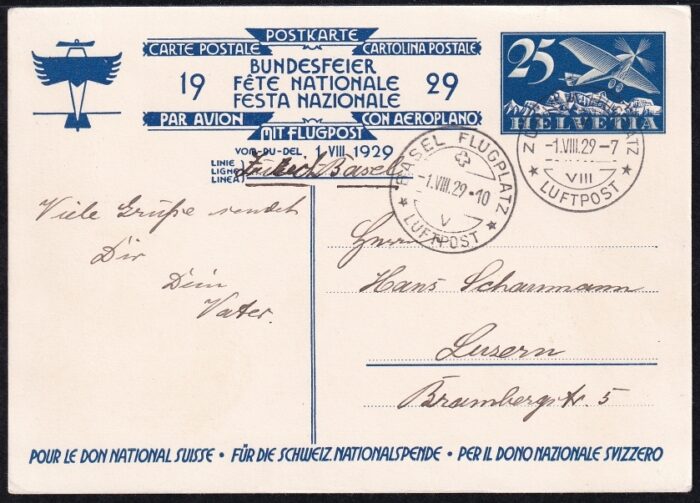 POSTKARTE
CARTE POSTALE CARTOLINA POSTALE
19 BUNDESFEIER 29
FÊTE NATIONALE
FESTA NAZIONALE
PAR AVION CON AEROPLANO
MIT FLUGPOST
VOM-DU-DEL 1.VIII 1929
LINIE
LIGNE
LINEA
Zürich Basel
25
HELVETIA
BASEL FLUGPLATZ
-1.VIII.29·10
V
LUFTPOST
-1.VIII.29-7
VIII
LUFTPOST
Viele Grüße sendet
Dir
Dein
Vater.
Herrn
Hans Scharmann
Luzern
Brambergstr. 5
POUR LE DON NATIONAL SUISSE · FÜR DIE SCHWEIZ. NATIONALSPENDE · PER IL DONO NAZIONALE SVIZZERO